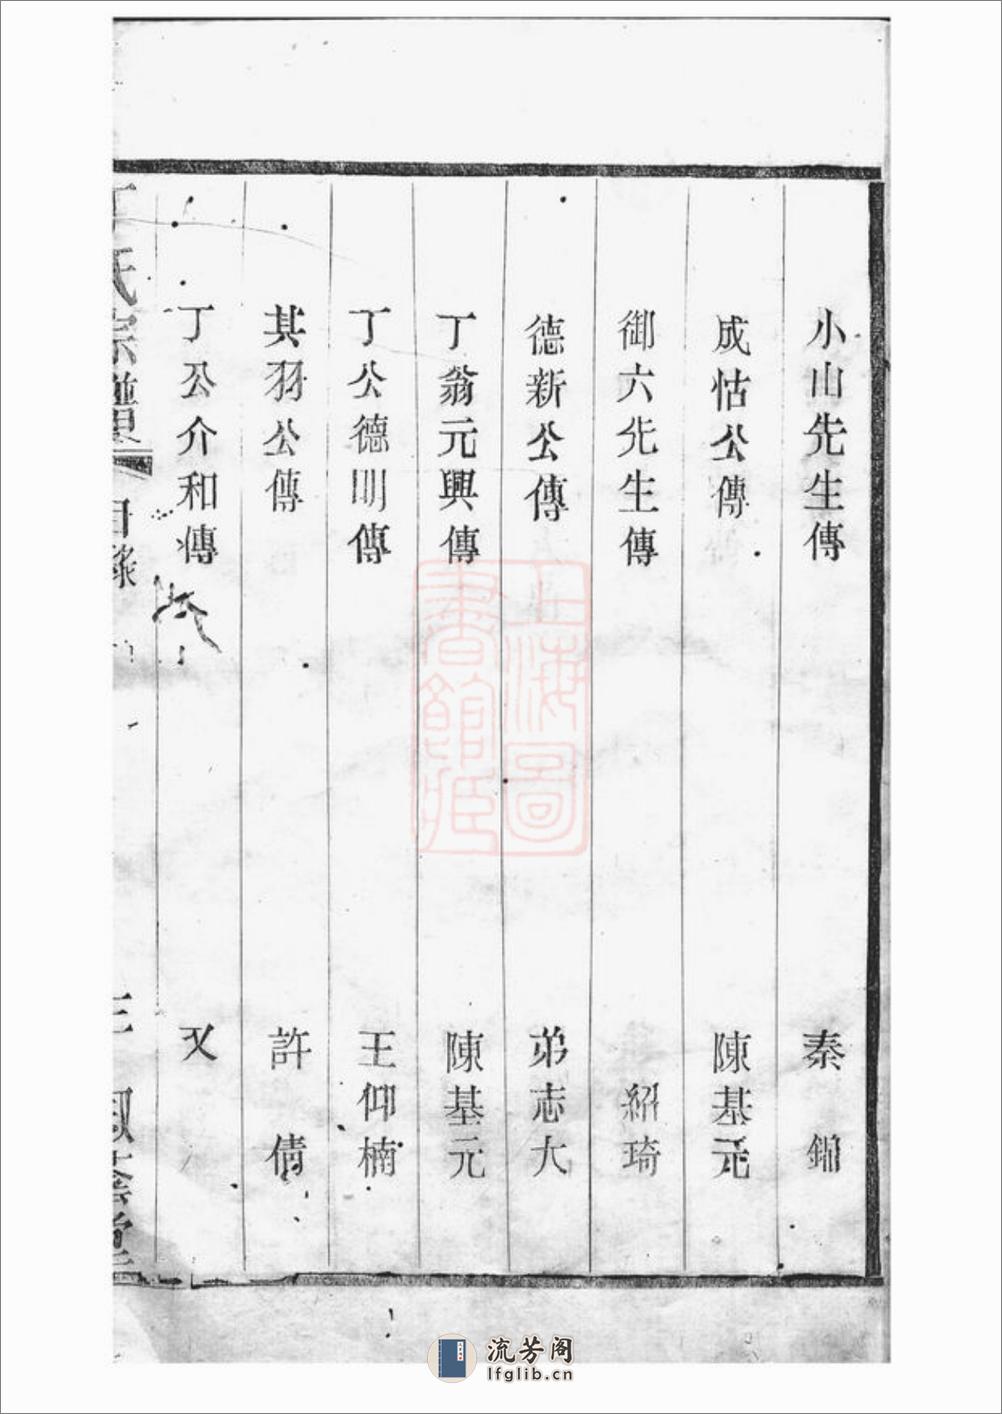 小山先生傳 秦 錦
成怙公傳 陳基元
御六先生傳 紹琦
德新公傳 弟志大
丁翁元興傳 陳基元
丁公德明傳 王仰楠
其羽公傳 許 倩
丁公介和傳 又
丁氏宗譜 目錄 三鳳蔭堂
上海圖書館藏
流芳阁
lfglib.cn